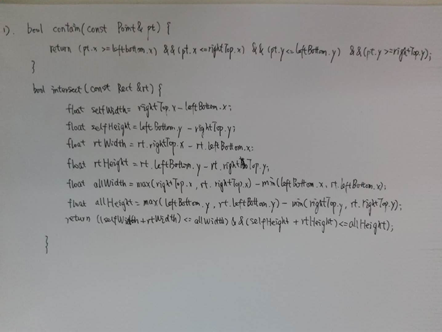 1) bool contain(const Point& pt) {
return (pt.x >= leftbottom.x) && (pt.x <= rightTop.x) && (pt.y <= leftBottom.y) && (pt.y >= rightTop.y);
}
bool intersect(const Rect &rt) {
float selfWidth = rightTop.x - leftBottom.x;
float selfHeight = leftBottom.y - rightTop.y;
float rtWidth = rt.rightTop.x - rt.leftBottom.x;
float rtHeight = rt.leftBottom.y - rt.rightTop.y;
float allWidth = max(rightTop.x, rt.rightTop.x) - min(leftBottom.x, rt.leftBottom.x);
float allHeight = max(leftBottom.y, rt.leftBottom.y) - min(rightTop.y, rt.rightTop.y);
return ((selfWidth + rtWidth) <= allWidth) && (selfHeight + rtHeight) <= allHeight);
}
}